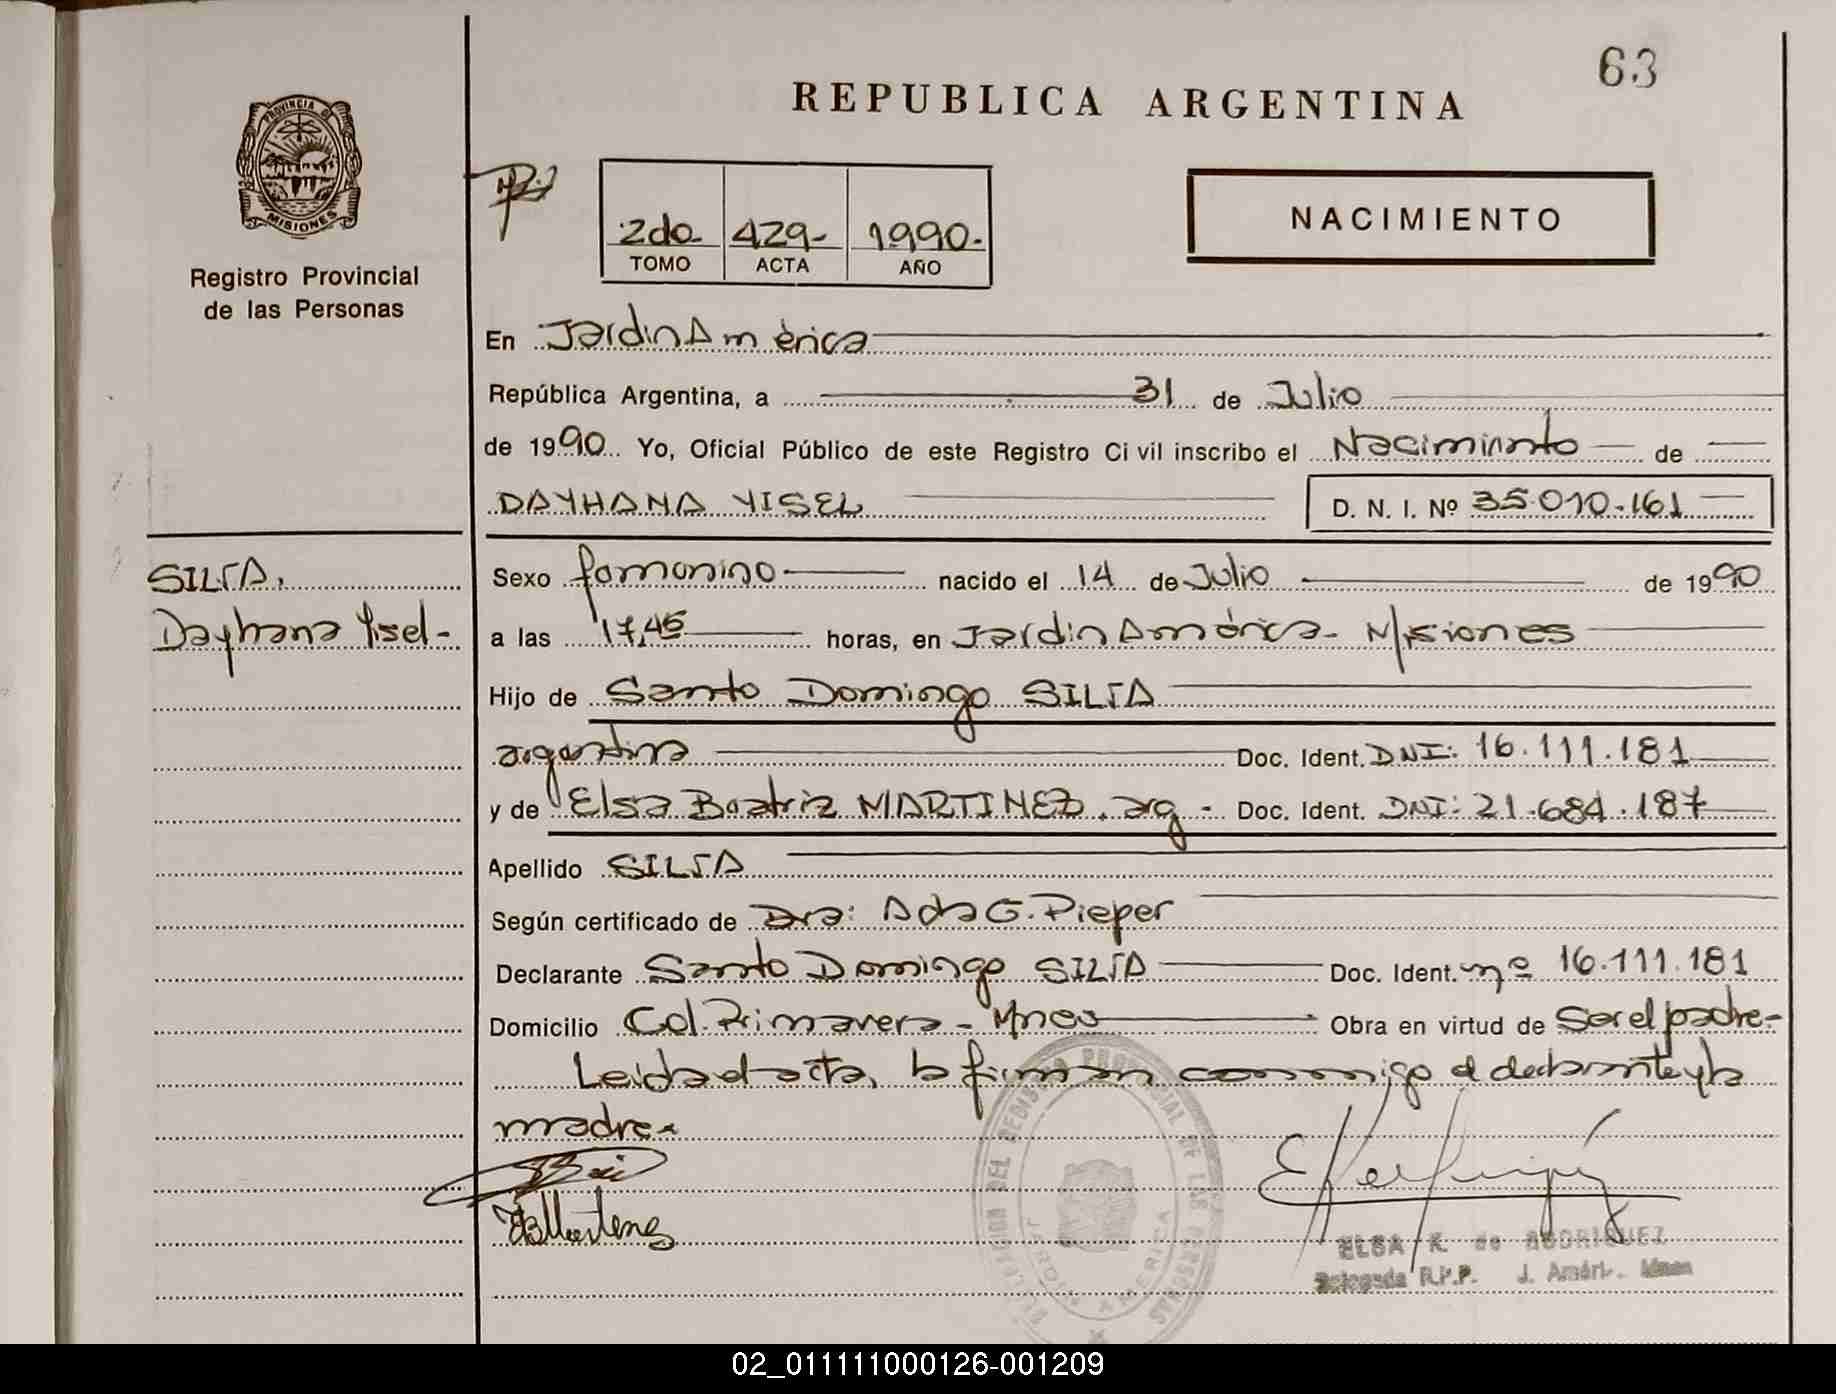 63
REPUBLICA ARGENTINA
PROVINCIA DE
MISIONES
Registro Provincial
de las Personas
2do- 429- 1990-
TOMO ACTA AÑO
NACIMIENTO
En Jardin América
República Argentina, a 31 de Julio
de 1990 Yo, Oficial Público de este Registro Ci vil inscribo el Nacimiento de
DAYHANA YISEL D. N. I. Nº 35.010.161
SILVA,
Dayhana Yisel-
Sexo femenino nacido el 14 de Julio de 1990
a las 17,45 horas, en Jardin América- Misiones
Hijo de Santo Domingo SILVA
argentina Doc. Ident. DNI: 16.111.181
y de Elsa Beatriz MARTINEZ. arg- Doc. Ident. DNI: 21.684.187
Apellido SILVA
Según certificado de Dra: Ada G. Pieper
Declarante Santo Domingo SILVA Doc. Ident. nº 16.111.181
Domicilio Col. Primavera- Mnes Obra en virtud de Ser el padre-
Leida el acta, la firman conmigo el declarante y la
madre-
DELEGACION DEL REGISTRO PROVINCIAL DE LAS PERSONAS
JARDIN AMERICA
EBMartinez
ELSA K. de RODRIGUEZ
Delegada R.P.P. J. Améri. Mnes
02_011111000126-001209